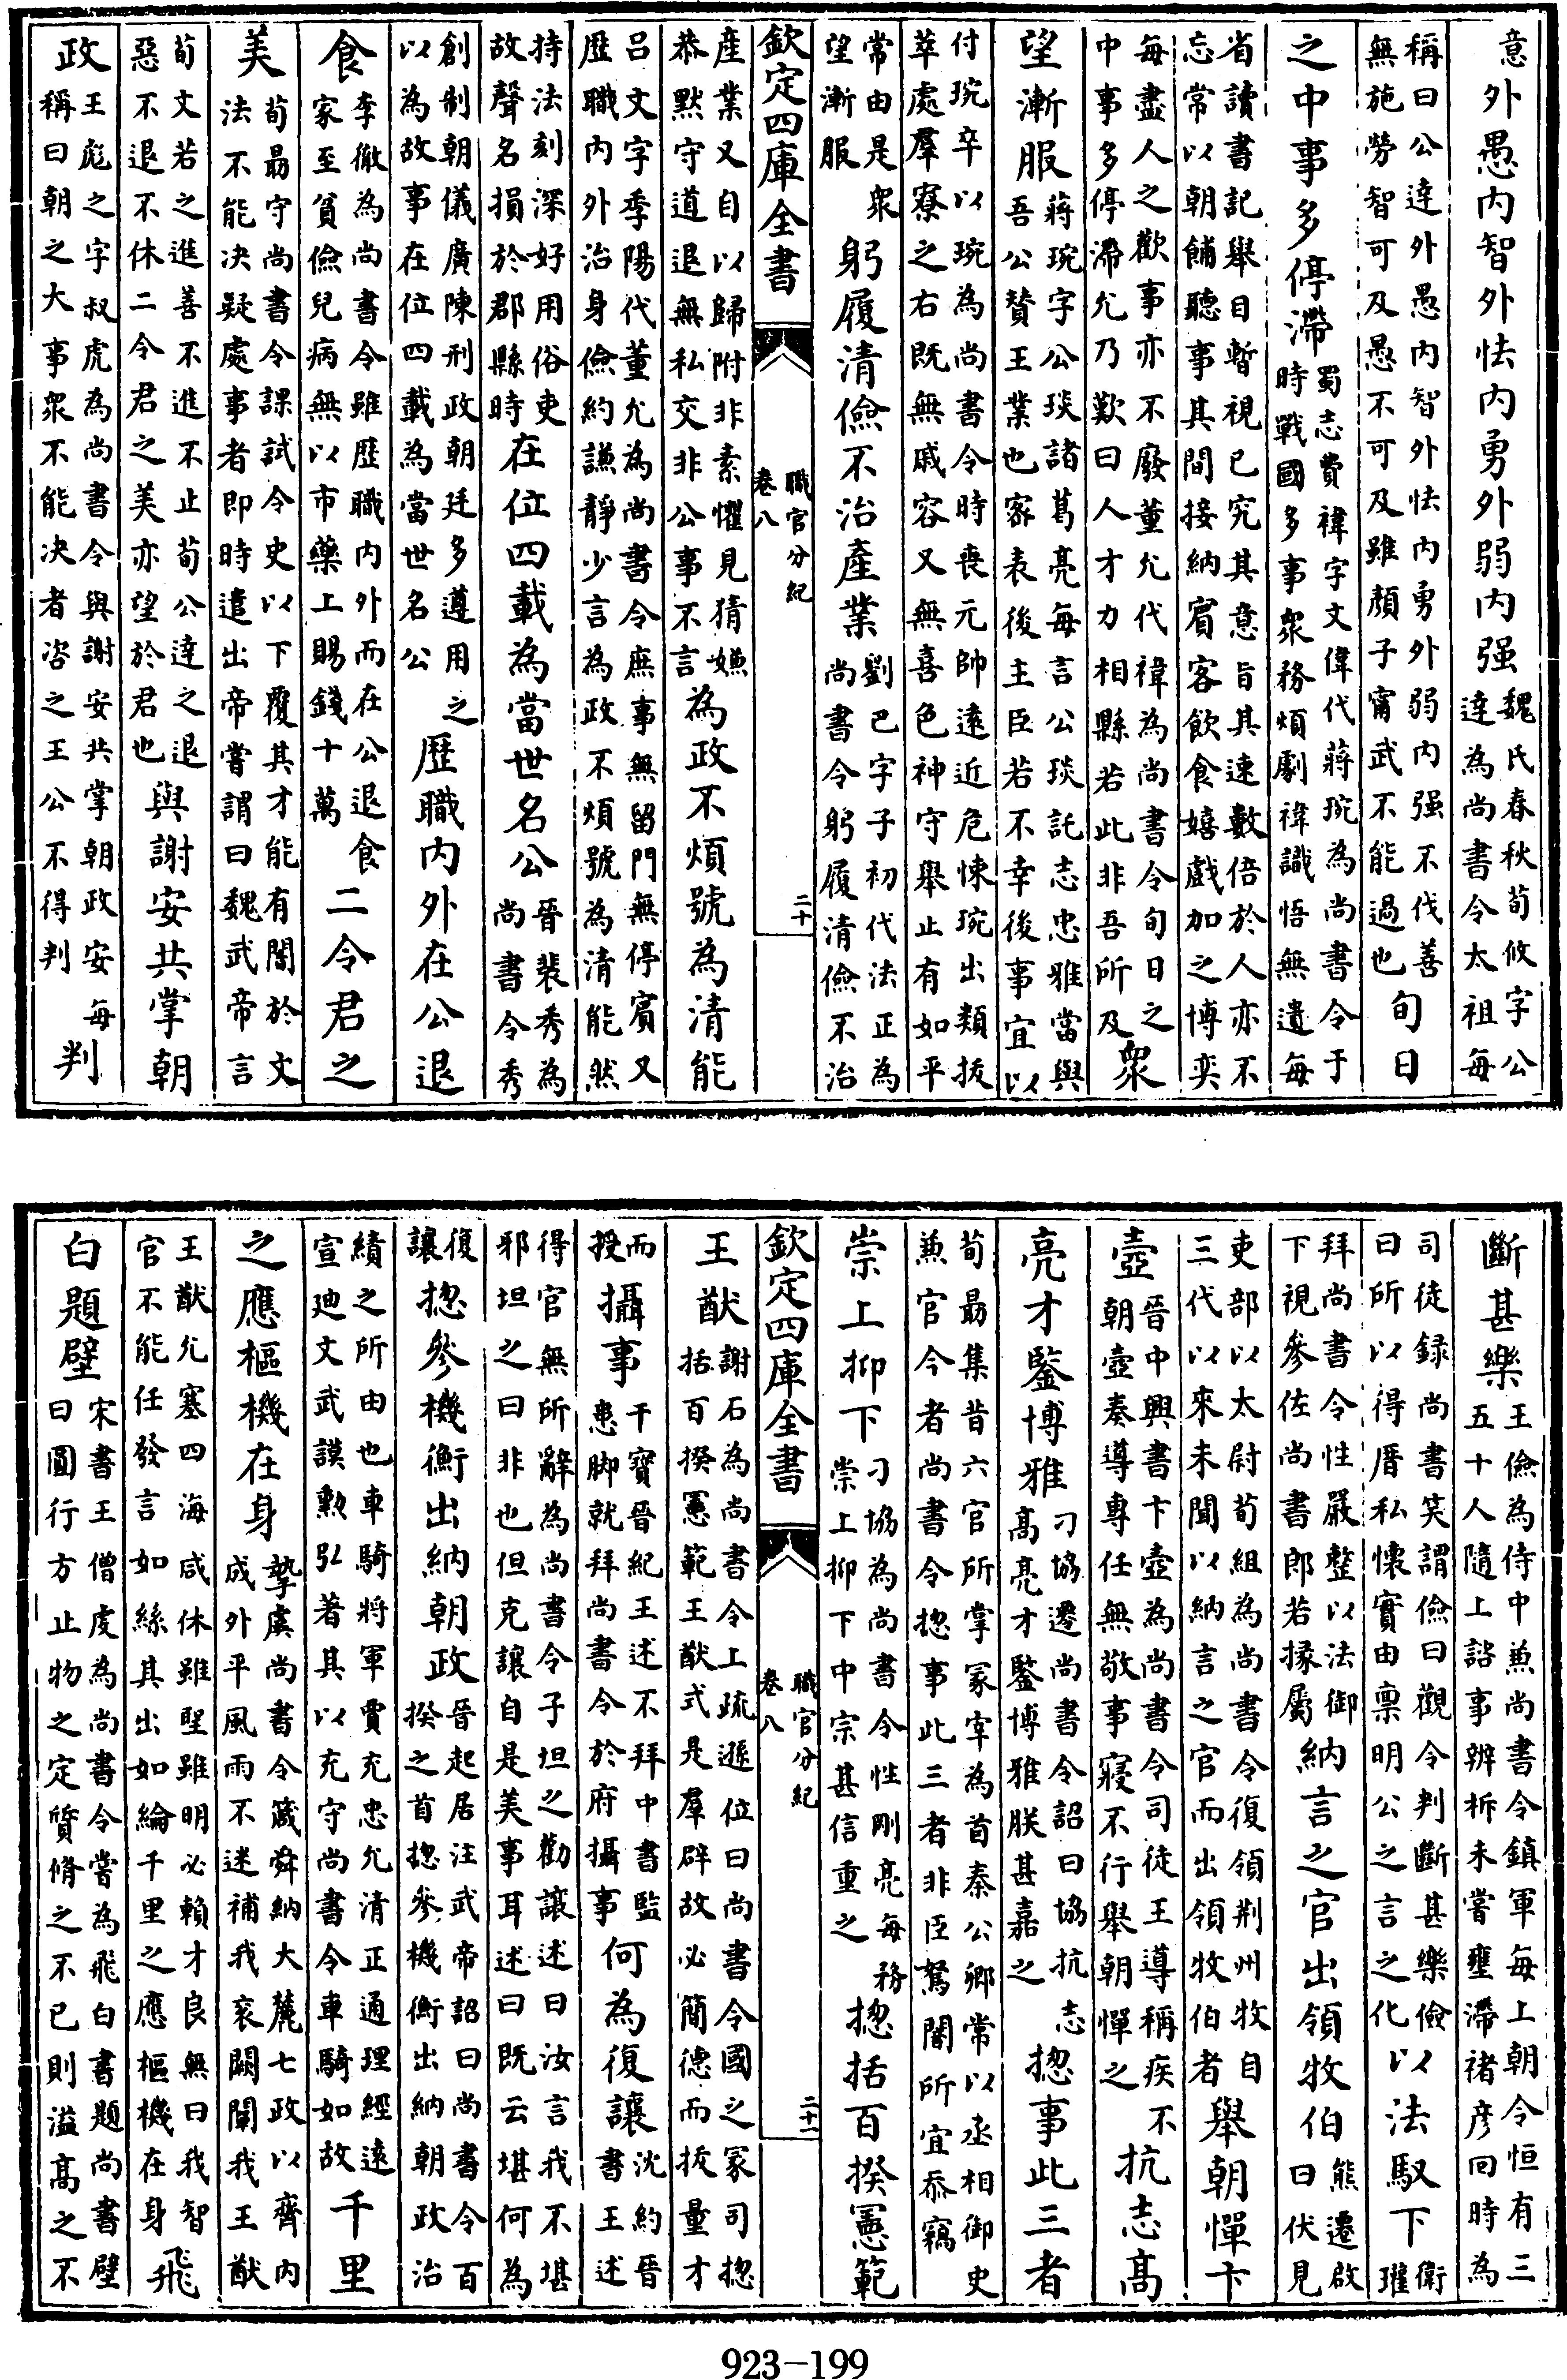 意外愚内智外怯内勇外弱内强魏氏春秋荀攸字公
達為尚書令太祖每
稱曰公達外愚内智外怯内勇外弱内强不伐善
無施勞智可及愚不可及雖顏子甯武不能過也旬日
之中事多停滯蜀志費禕字文偉代蔣琬為尚書令于
時戰國多事衆務煩劇禕識悟無遺每
省讀書記舉目暫視已究其意旨其速數倍於人亦不
忘常以朝餔聽事其間接納賓客飲食嬉戲加之博奕
每盡人之歡事亦不廢董允代禕為尚書令旬日之
中事多停滯允乃歎曰人才力相縣若此非吾所及衆
望漸服蔣琬字公琰諸葛亮每言公琰託志忠雅當與
吾公賛王業也宻表後主臣若不幸後事宜以
付琬卒以琬為尚書令時喪元帥遠近危悚琬出類拔
萃處羣寮之右既無戚容又無喜色神守舉止有如平
常由是衆
望漸服躬履清儉不治產業劉巴字子初代法正為
尚書令躬履清儉不治
欽定四庫全書
職官分紀
卷八
二十
產業又自以歸附非素懼見猜嫌
恭默守道退無私交非公事不言為政不煩號為清能
吕文字季陽代董允為尚書令庶事無留門無停賓又
歷職内外治身儉約謙靜少言為政不煩號為清能然
持法刻深好用俗吏
故聲名損於郡縣時在位四載為當世名公晉裴秀為
尚書令秀
創制朝儀廣陳刑政朝廷多遵用之
以為故事在位四載為當世名公歷職内外在公退
食李徹為尚書令雖歷職内外而在公退食
家至貧儉兒病無以市藥上賜錢十萬二令君之
美荀勗守尚書令課試令史以下覆其才能有闇於文
法不能决疑處事者即時遣出帝嘗謂曰魏武帝言
荀文若之進善不進不止荀公達之退
惡不退不休二令君之美亦望於君也與謝安共掌朝
政王彪之字叔虎為尚書令與謝安共掌朝政安每
稱曰朝之大事衆不能决者咨之王公不得判判
斷甚樂王儉為侍中兼尚書令鎮軍每上朝令恒有三
五十人隨上諮事辨析未嘗壅滯褚彦回時為
司徒録尚書笑謂儉曰觀令判斷甚樂儉
曰所以得厝私懷實由稟明公之言之化以法馭下衛瓘
拜尚書令性嚴整以法御
下視參佐尚書郎若掾屬納言之官出領牧伯熊遷啟
曰伏見
吏部以太尉荀組為尚書令復領荆州牧自
三代以來未聞以納言之官而出領牧伯者舉朝憚卞
壺晉中興書卞壺為尚書令司徒王導稱疾不
朝壺奏導專任無敬事寢不行舉朝憚之抗志高
亮才鑒博雅刁協遷尚書令詔曰協抗志
高亮才鑒博雅朕甚嘉之揔事此三者
荀勗集昔六官所掌冢宰為首秦公卿常以丞相御史
兼官今者尚書令揔事此三者非臣駑闇所宜忝竊
崇上抑下刁協為尚書令性剛亮每務
崇上抑下中宗甚信重之揔括百揆憲範
欽定四庫全書
職官分紀
卷八
二十一
王猷謝石為尚書令上疏遜位曰尚書令國之冢司揔
括百揆憲範王猷式是羣辟故必簡德而拔量才
而
授攝事干寶晉紀王述不拜中書監
患脚就拜尚書令於府攝事何為復讓沈約晉
書王述
得官無所辭為尚書令子坦之勸讓述曰汝言我不堪
邪坦之曰非也但克讓自是美事耳述曰既云堪何為
復
讓揔參機衡出納朝政晉起居注武帝詔曰尚書令百
揆之首揔參機衡出納朝政治
績之所由也車騎將軍賈充忠允清正通理經遠
宣廸文武謨勲弘著其以充守尚書令車騎如故千里
之應樞機在身摯虞尚書令箴舜納大麓七政以齊内
成外平風雨不迷補我衮闕闡我王猷
王猷允塞四海咸休雖聖雖明必賴才良無曰我智
官不能任發言如絲其出如綸千里之應樞機在身飛
白題壁宋書王僧虔為尚書令嘗為飛白書題尚書壁
曰圓行方止物之定質脩之不已則溢高之不
923-199